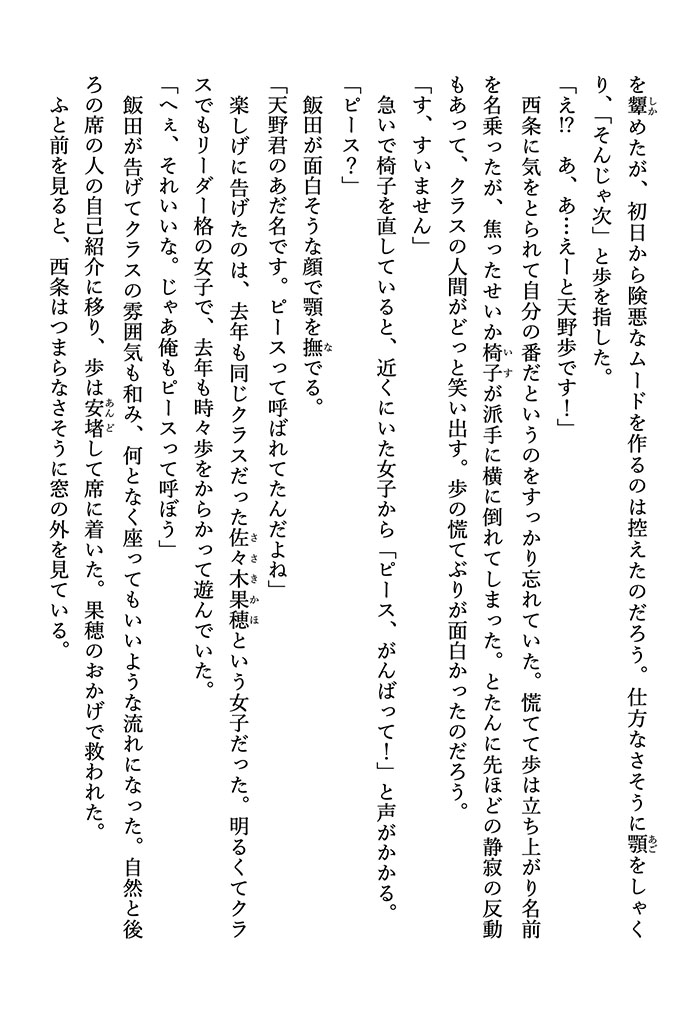 を顰めたが、初日から険悪なムードを作るのは控えたのだろう。仕方なさそうに顎をしゃく
り、「そんじゃ次」と歩を指した。
「え!? あ、あ…えーと天野歩です！」
西条に気をとられて自分の番だというのをすっかり忘れていた。慌てて歩は立ち上がり名前
を名乗ったが、焦ったせいか椅子が派手に横に倒れてしまった。とたんに先ほどの静寂の反動
もあって、クラスの人間がどっと笑い出す。歩の慌てぶりが面白かったのだろう。
「す、すいません」
急いで椅子を直していると、近くにいた女子から「ピース、がんばって！」と声がかかる。
「ピース？」
飯田が面白そうな顔で顎を撫でる。
「天野君のあだ名です。ピースって呼ばれてたんだよね」
楽しげに告げたのは、去年も同じクラスだった佐々木果穂という女子だった。明るくてクラ
スでもリーダー格の女子で、去年も時々歩をからかって遊んでいた。
「へぇ、それいいな。じゃあ俺もピースって呼ぼう」
飯田が告げてクラスの雰囲気も和み、何となく座ってもいいような流れになった。自然と後
ろの席の人の自己紹介に移り、歩は安堵して席に着いた。果穂のおかげで救われた。
ふと前を見ると、西条はつまらなさそうに窓の外を見ている。